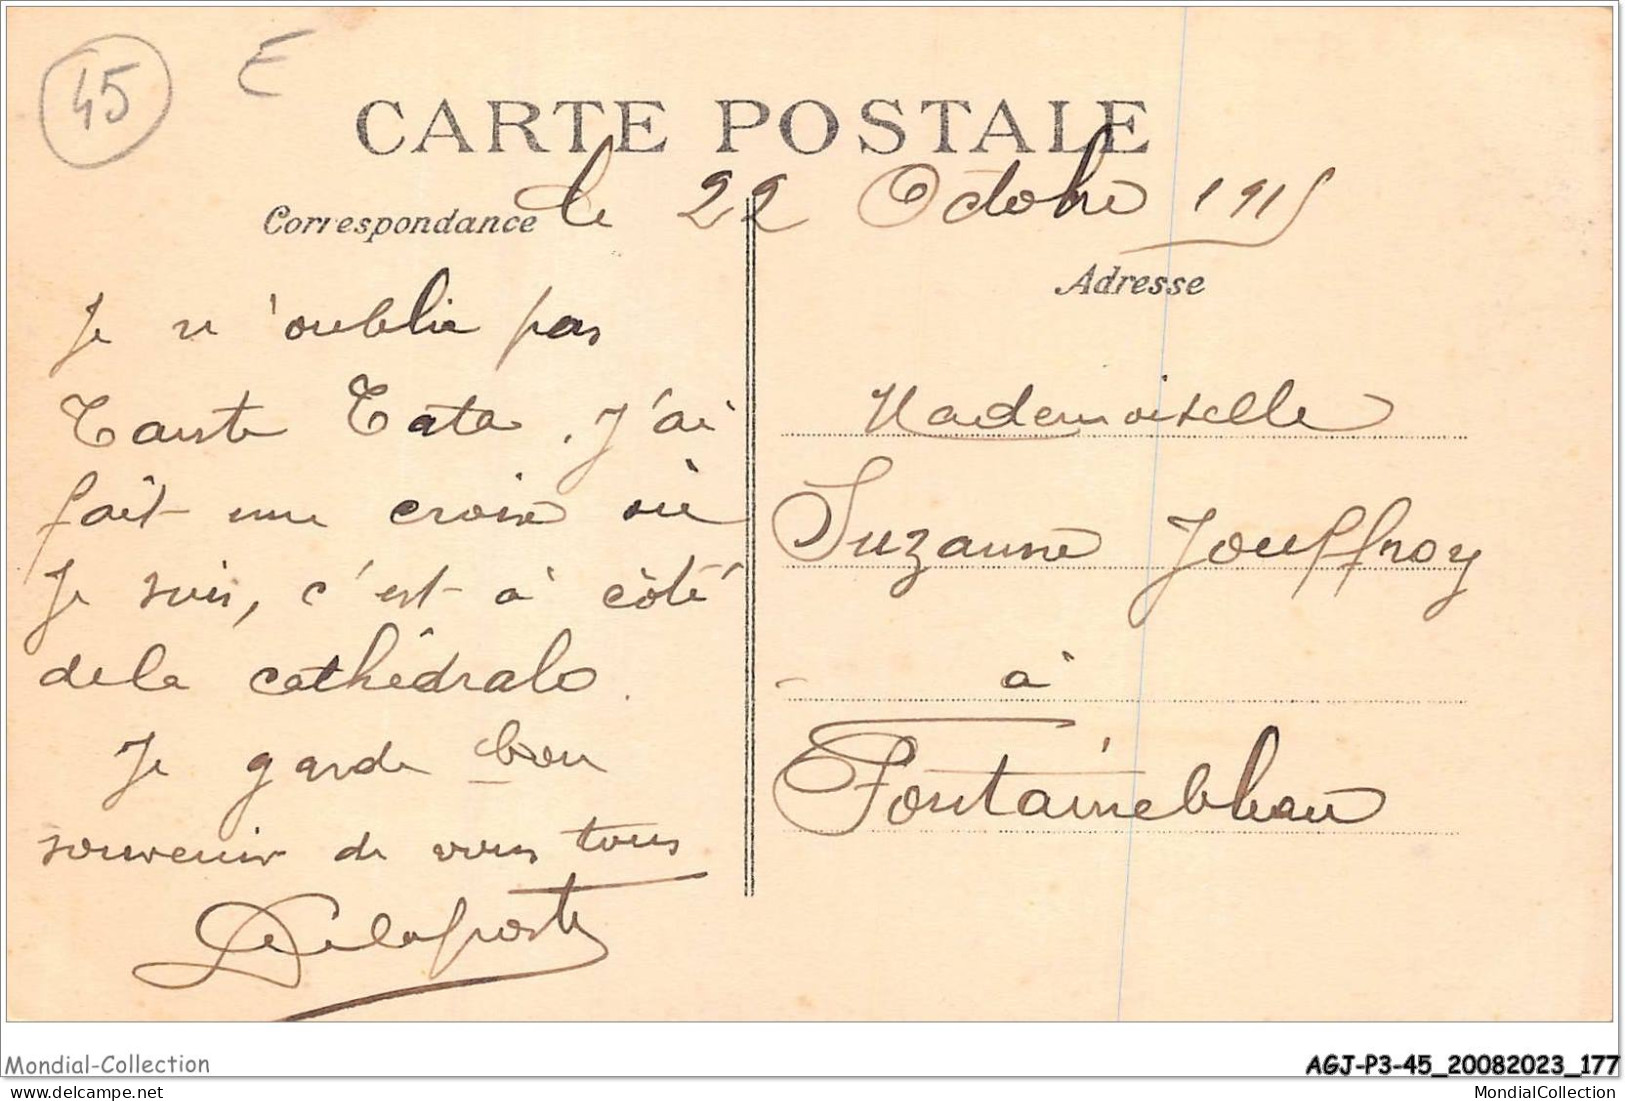 45 E
CARTE POSTALE
Correspondance
le 22 Octobre 1915
Adresse
Je n'oublie pas
Tante Tata. J'ai
fait une croix où
Je suis, c'est à côté
de la cathédrale.
Je garde bon
souvenir de vous tous
Delaporte
Mademoiselle
Suzanne Jouffroy
à
Fontainebleau
Mondial-Collection
AGJ-P3-45_20082023_177
MondialCollection